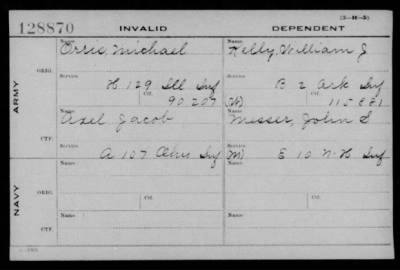 (3-H-5)
128870 INVALID DEPENDENT
Name Name
Orris, Michael Kelly, William J
ORIG. Service Service
H 129 Ill Inf B 2 Ark Inf
Ctf. 90207 (M) Ctf. 115881
ARMY
Name Name
Axel Jacob Messer, John S
CTF. Service Service
A 107 Ohio Inf (M) E 10 N-H Inf
Name Name
NAVY
ORIG. Service Service
Ctf. Ctf.
Name Name
CTF. Service Service